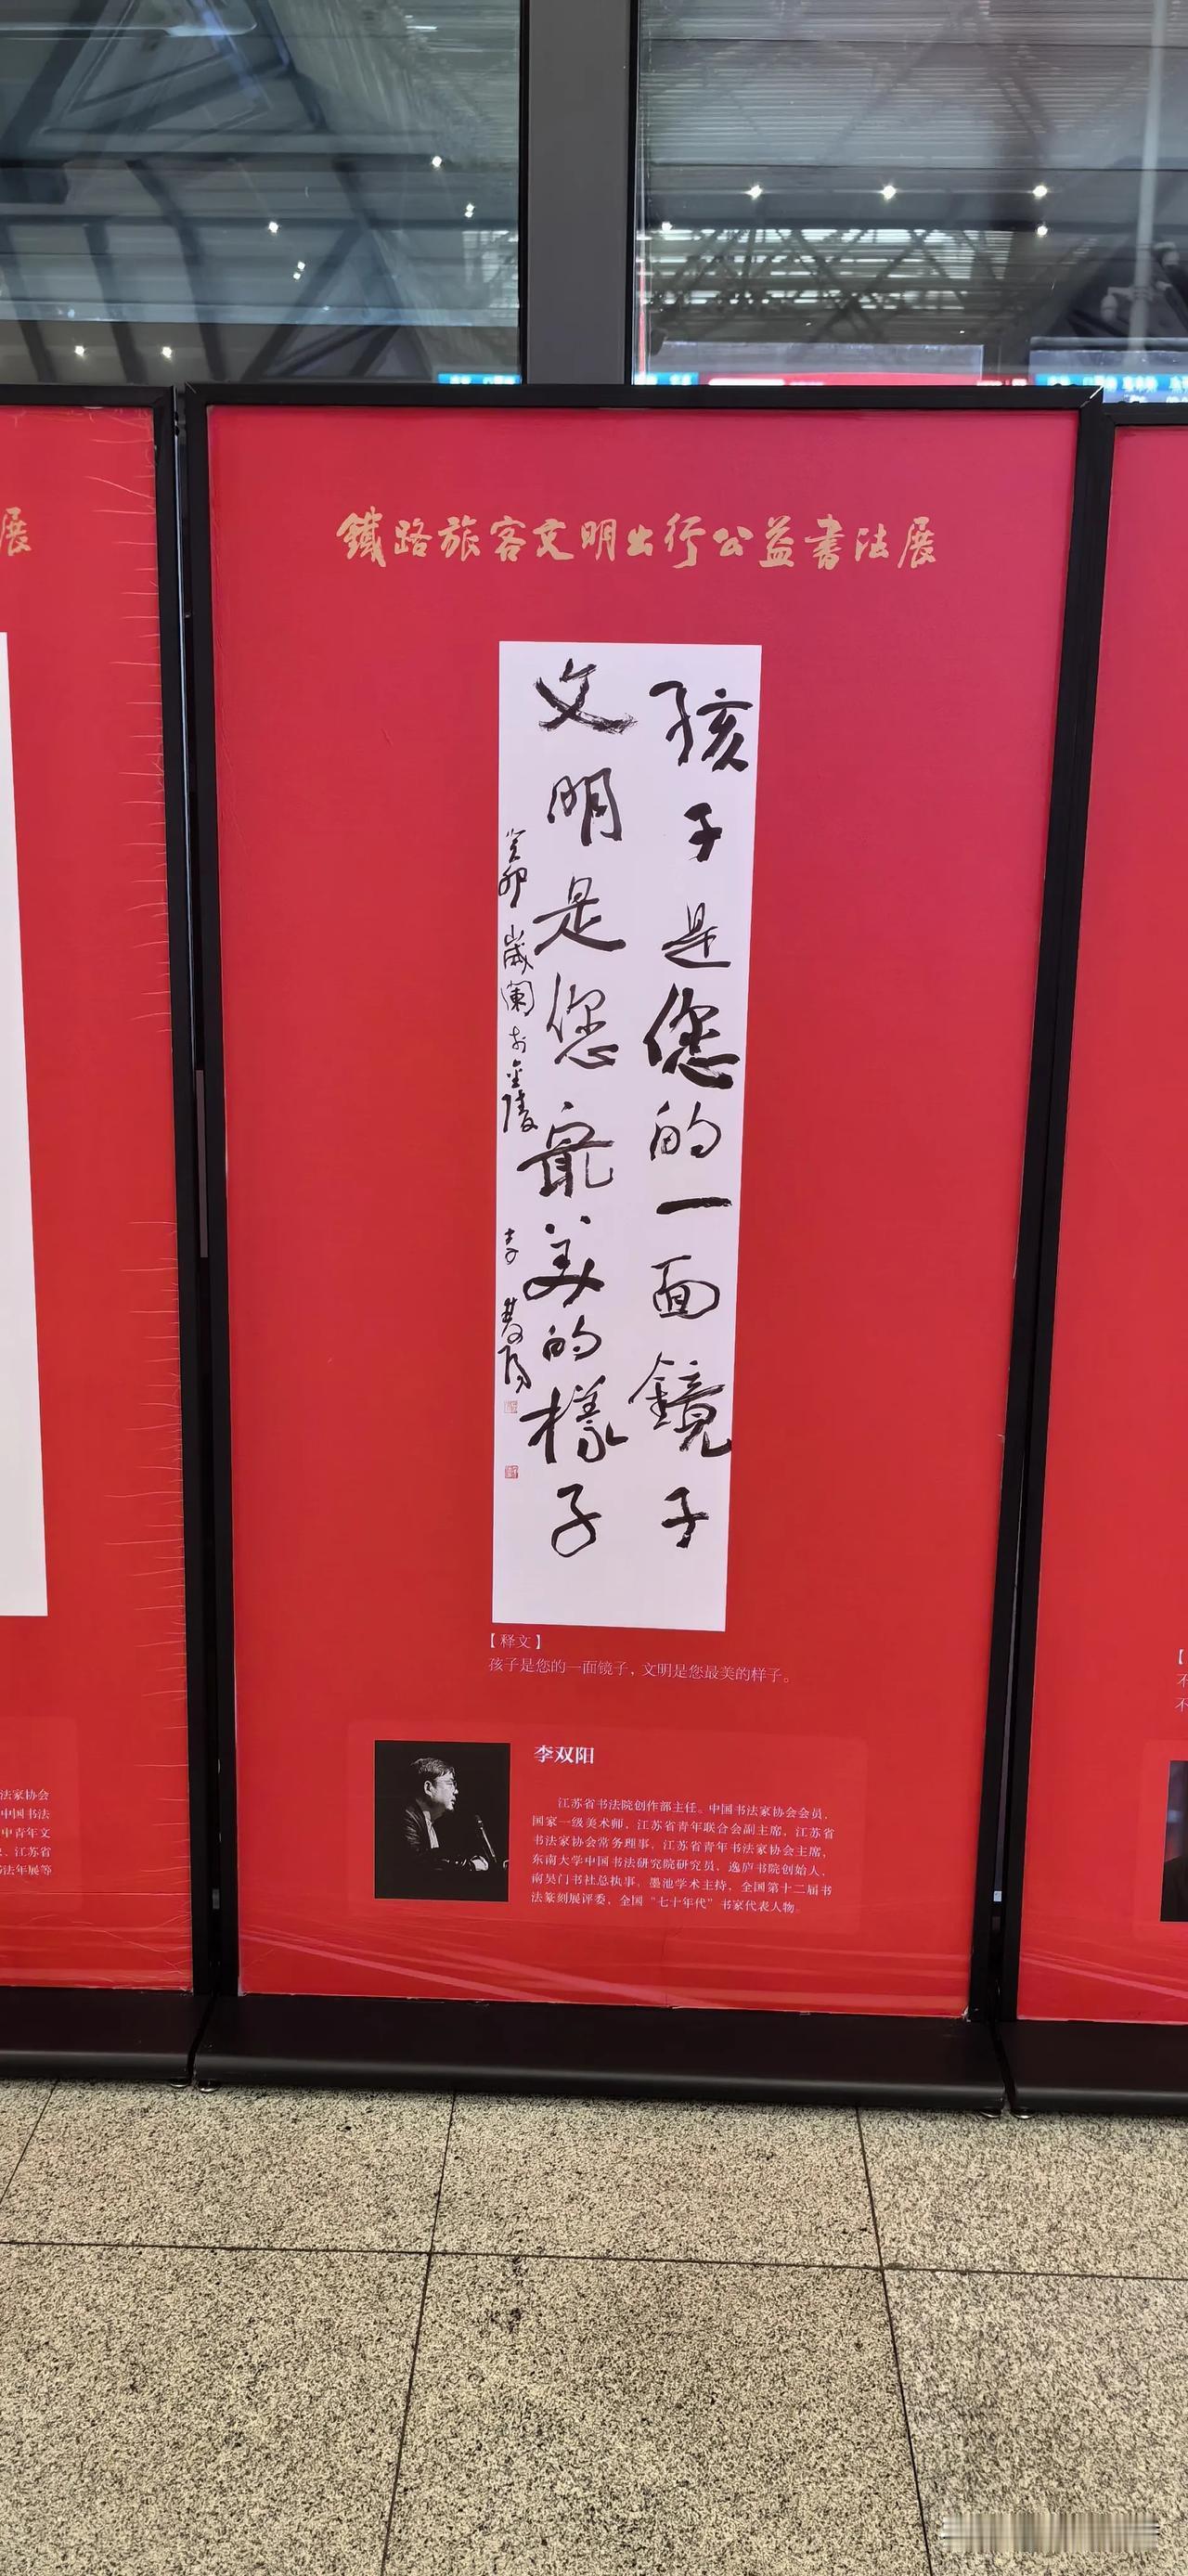 鐵路旅客文明出行公益書法展
孩子是您的一面鏡子
文明是您最美的樣子
癸卯歲闌於金陵
李雙陽
【释文】
孩子是您的一面镜子，文明是您最美的样子。
李双阳
江苏省书法院创作部主任。中国书法家协会会员，
国家一级美术师，江苏省青年联合会副主席，江苏省
书法家协会常务理事，江苏省青年书法家协会主席，
东南大学中国书法研究院研究员，逸庐书院创始人，
南吴门书社总执事，墨池学术主持，全国第十二届书
法篆刻展评委，全国“七十年代”书家代表人物。
展
法家协会
中国书法
中青年文
、江苏省
书法年展等
【
不
不